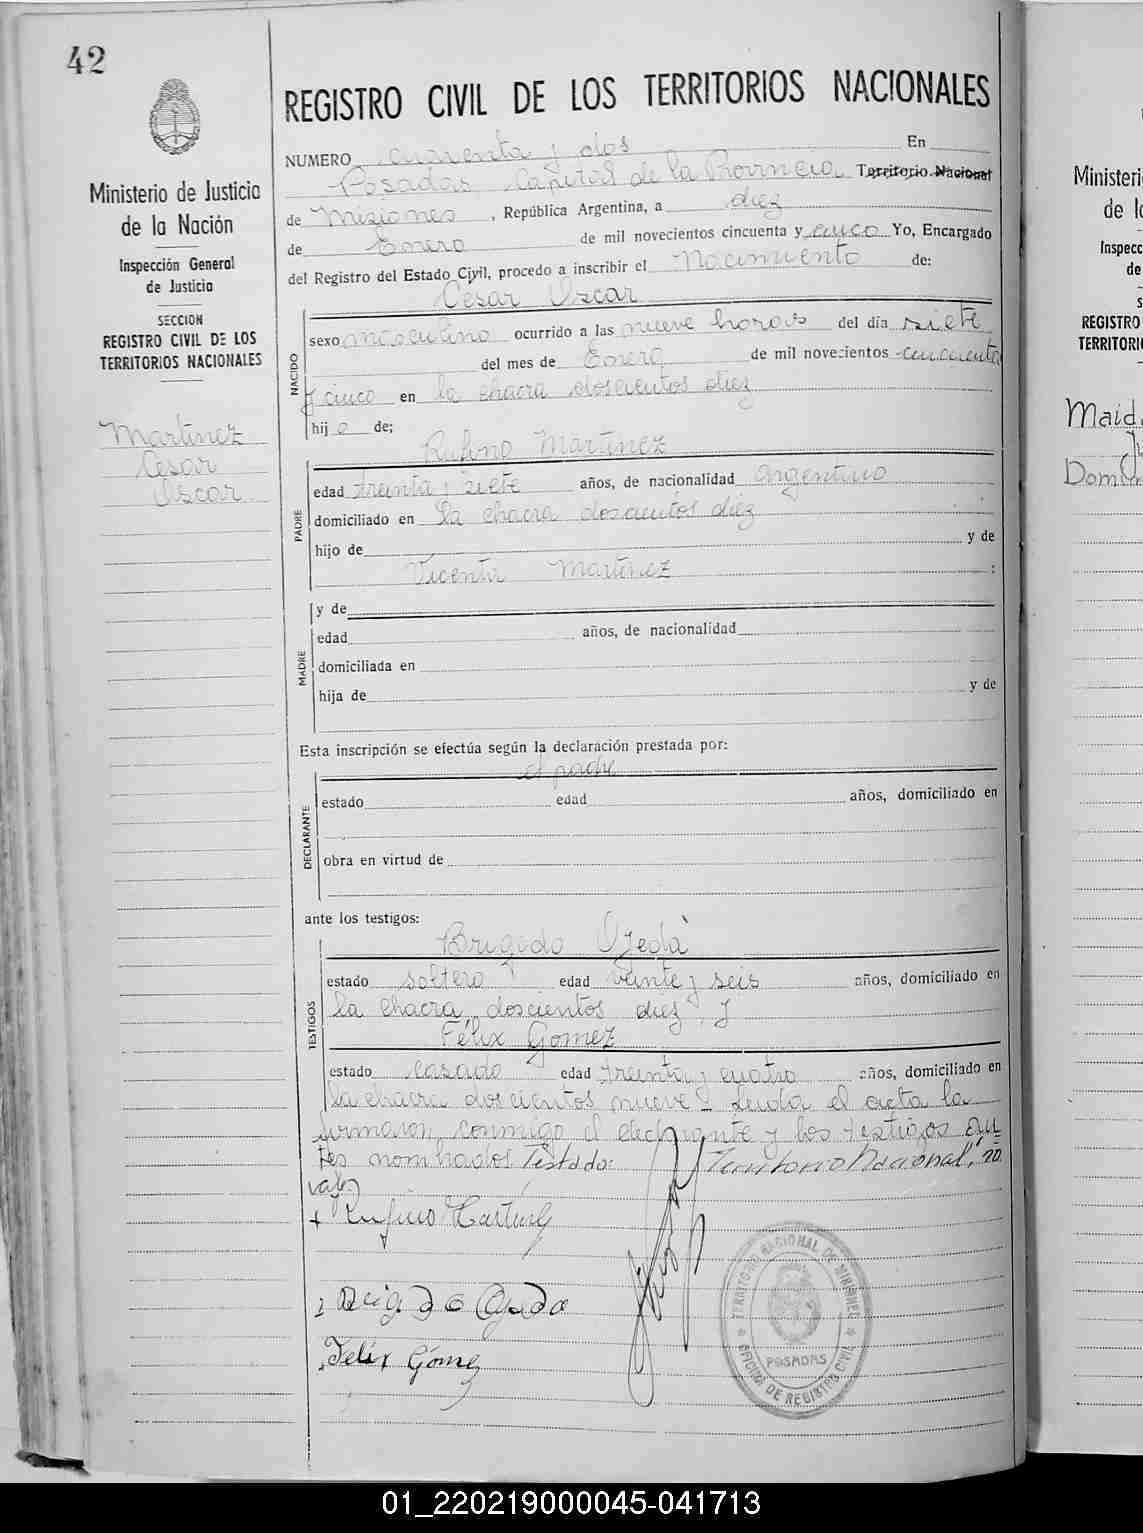 42
Ministerio de Justicia
de la Nación
Inspección General
de Justicia
SECCION
REGISTRO CIVIL DE LOS
TERRITORIOS NACIONALES
Martinez
Cesar
Oscar
REGISTRO CIVIL DE LOS TERRITORIOS NACIONALES
NUMERO cuarenta y dos En
Posadas, Capital de la Provincia Territorio Nacional
de Misiones, República Argentina, a diez
de Enero de mil novecientos cincuenta y cinco Yo, Encargado
del Registro del Estado Civil, procedo a inscribir el Nacimiento de:
Cesar Oscar
NACIDO
sexo masculino ocurrido a las nueve horas del día siete
del mes de Enero de mil novecientos cincuenta
y cinco en la chacra doscientos diez
hijo de;
Rufino Martinez
PADRE
edad treinta y siete años, de nacionalidad argentino
domiciliado en la chacra doscientos diez
hijo de y de
Vicenta Martinez :
y de
MADRE
edad años, de nacionalidad
domiciliada en
hija de y de
Esta inscripción se efectúa según la declaración prestada por:
el padre
DECLARANTE
estado edad años, domiciliado en
obra en virtud de
ante los testigos:
Brigido Ojeda
TESTIGOS
estado soltero edad veinte y seis años, domiciliado en
la chacra doscientos diez y
Félix Gomez
estado casado edad treinta y cuatro años, domiciliado en
la chacra doscientos nueve - Leida el acta la
firmaron conmigo el declarante y los testigos an-
tes nombrados Testado: "Territorio Nacional", no
vale
+ Rufino Martinez
Brigido Ojeda
Felix Gómez
TERRITORIO NACIONAL DE MISIONES
POSADAS
OFICINA DE REGISTRO CIVIL
Ministeri
de l
Inspecc
de
S
REGISTRO
TERRITORI
Maid
Ju
Dom
01_220219000045-041713